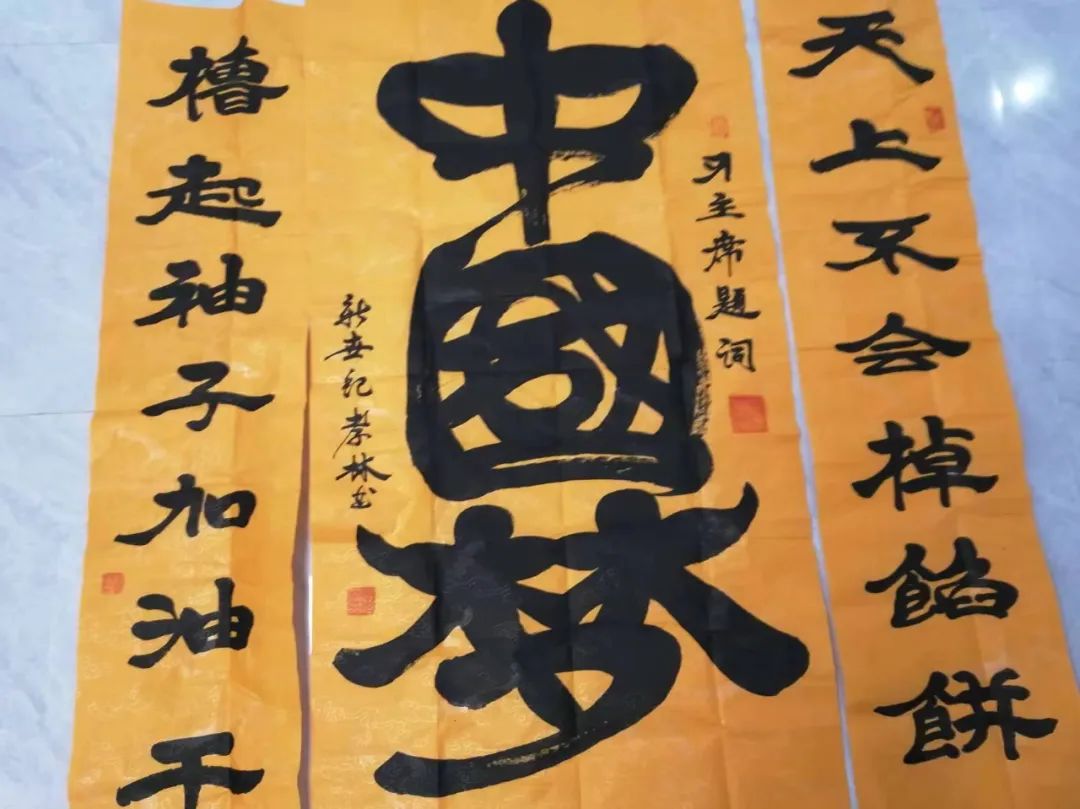 天上不会掉餡餅
习主席题词
中國梦
新世纪孝林书
槽起袖子加油干